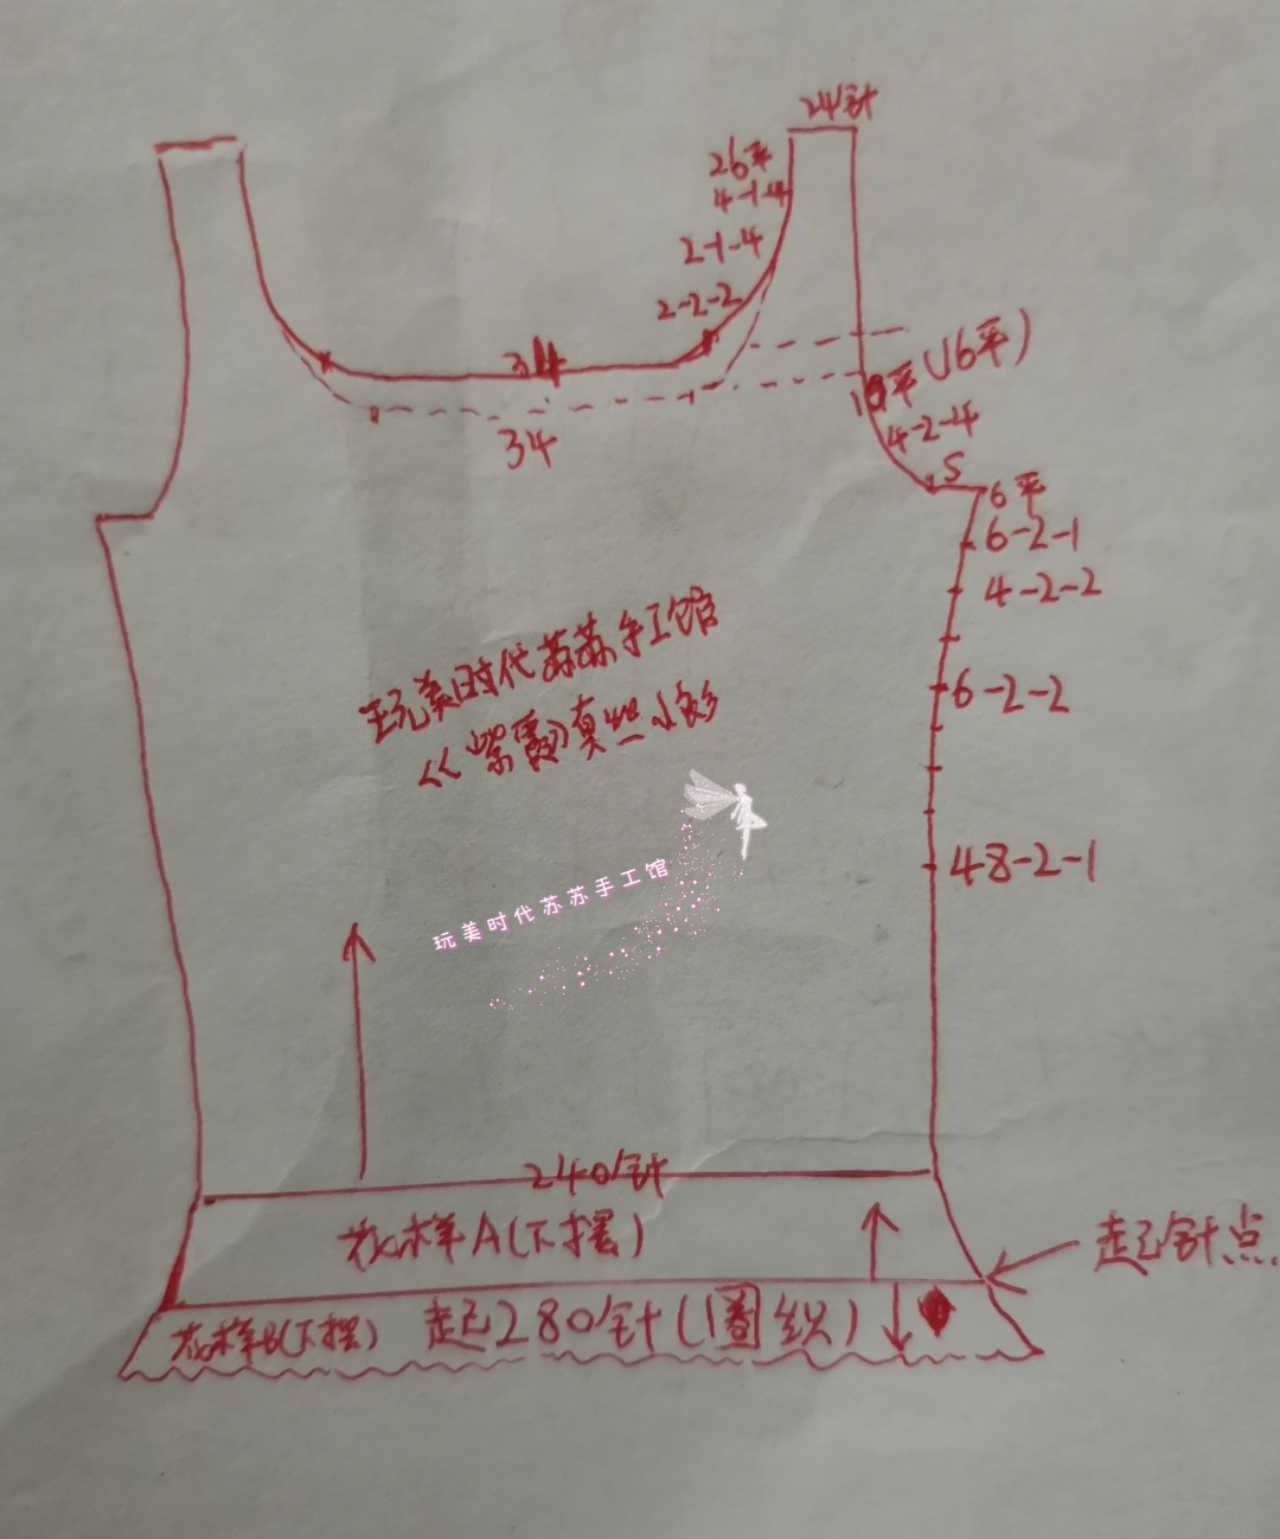 24针
26平
4-1-4
2-1-4
2-2-2
34
34
10平(16平)
4-2-4
5
6平
6-2-1
4-2-2
6-2-2
48-2-1
玩美时代苏苏手工馆
《紫霞》真丝小衫
玩美时代苏苏手工馆
240针
花样A(下摆)
起针点
花样B(下摆) 起280针(圈织)